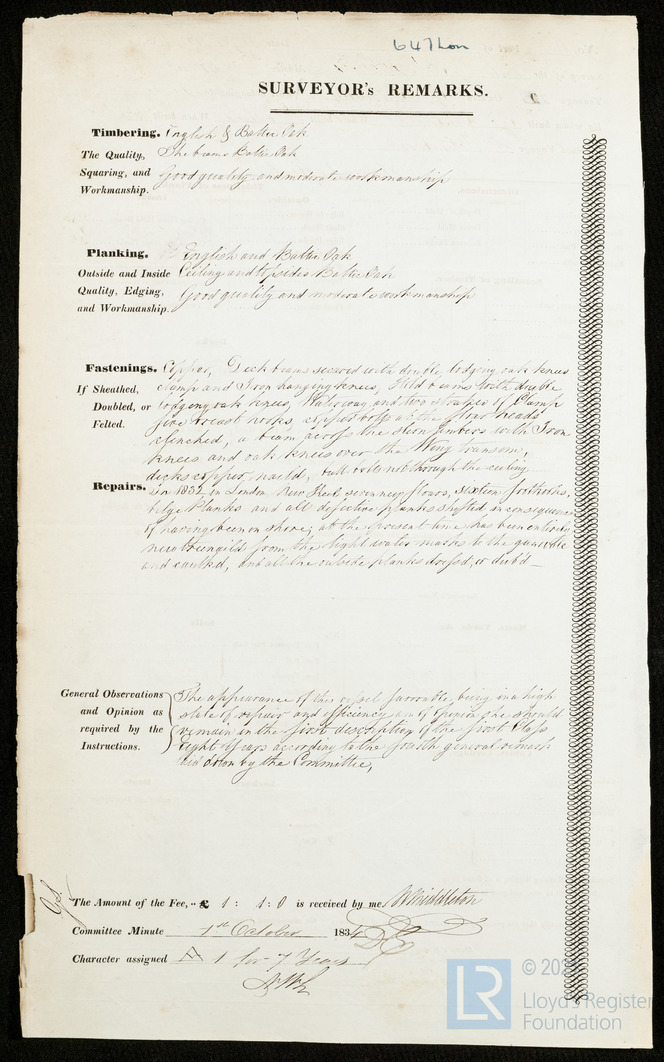 647 Lon
SURVEYOR's REMARKS.
Timbering. English & Baltic Oak
The Quality, The beams Baltic Oak
Squaring, and Good quality and moderate workmanship
Workmanship.
Planking. English and Baltic Oak
Outside and Inside Ceiling and topsides Baltic Oak
Quality, Edging, Good quality and moderate workmanship
and Workmanship.
Fastenings. Copper, Deck beams secured with double lodging oak knees
If Sheathed, clamp and Iron hanging knees, Hold beams with double
Doubled, or lodging oak knees, Waterway and two strakes of Clamp
Felted. five breast hooks, copper bolts at the floor heads
clenched, a beam across the stern timbers with Iron
knees and oak knees over the Wing transom,
decks copper nail'd, butt bolts not through the ceiling
Repairs. In 1832 in London New Keel seven new floors, sixteen foothooks,
bilge Planks and all defective planks shifted in consequence
of having been on shore; at the present time has been entirely
new treenail'd from the light water marks to the gunwale
and caulked, and all the outside planks dressed, or dub'd
General Observations The appearance of this vessel favorable, being in a high
and Opinion as state of repair and efficiency am of Opinion she should
required by the remain in the first description of the first Class
Instructions. Eight Years according to the fourth general remark
laid down by the Committee,
The Amount of the Fee, £ 1 : 1 : 0 is received by me W Middleton
Committee Minute 1st October 1834
Character assigned A 1 for 7 Years
LR © 202
Lloyd's Register
Foundation